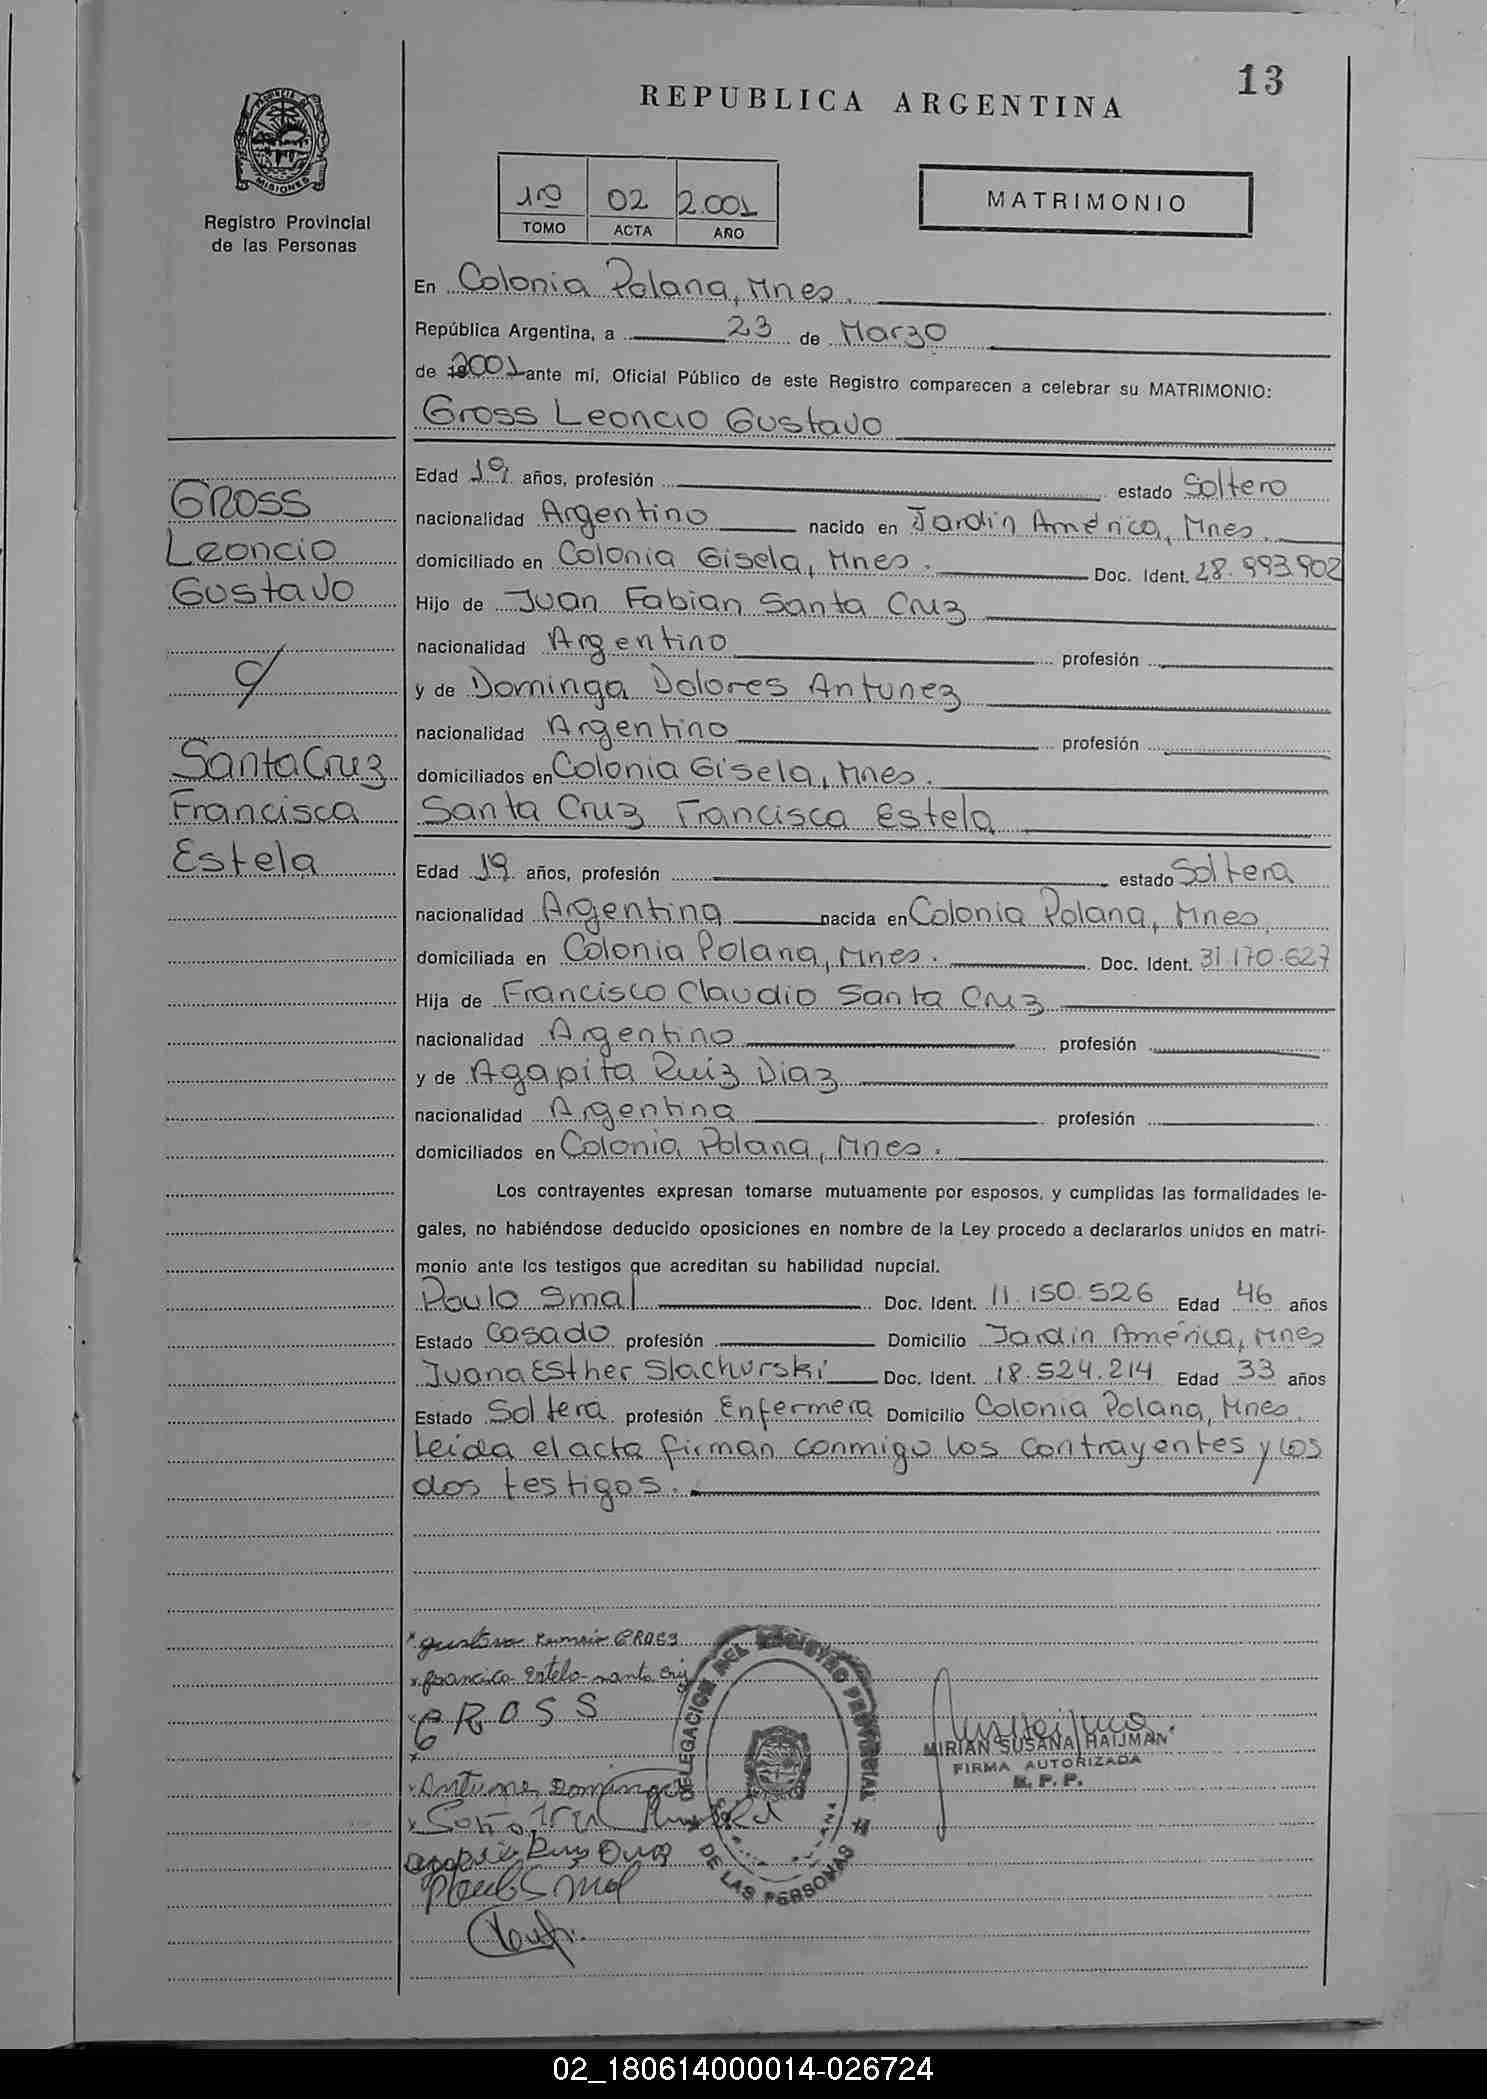 13
REPUBLICA ARGENTINA
PROVINCIA DE
MISIONES
Registro Provincial
de las Personas
1º 02 2.001
TOMO ACTA AÑO
MATRIMONIO
En Colonia Polana, Mnes.
República Argentina, a 23 de Marzo
de 2001 ante mí, Oficial Público de este Registro comparecen a celebrar su MATRIMONIO:
Gross Leoncio Gustavo
GROSS
Leoncio
Gustavo
c/
Santa Cruz
Francisca
Estela
Edad 19 años, profesión estado Soltero
nacionalidad Argentino nacido en Jardín América, Mnes.
domiciliado en Colonia Gisela, Mnes. Doc. Ident. 28.993.902
Hijo de Juan Fabian Santa Cruz
nacionalidad Argentino profesión
y de Dominga Dolores Antunez
nacionalidad Argentino profesión
domiciliados en Colonia Gisela, Mnes.
Santa Cruz Francisca Estela
Edad 19 años, profesión estado Soltera
nacionalidad Argentina nacida en Colonia Polana, Mnes.
domiciliada en Colonia Polana, Mnes. Doc. Ident. 31.170.627
Hija de Francisco Claudio Santa Cruz
nacionalidad Argentino profesión
y de Agapita Ruiz Diaz
nacionalidad Argentina profesión
domiciliados en Colonia Polana, Mnes.
Los contrayentes expresan tomarse mutuamente por esposos, y cumplidas las formalidades le-
gales, no habiéndose deducido oposiciones en nombre de la Ley procedo a declararlos unidos en matri-
monio ante los testigos que acreditan su habilidad nupcial.
Paulo Smal Doc. Ident. 11.150.526 Edad 46 años
Estado Casado profesión Domicilio Jardín América, Mnes
Juana Esther Slachurski Doc. Ident. 18.524.214 Edad 33 años
Estado Soltera profesión Enfermera Domicilio Colonia Polana, Mnes.
Leida el acta firman conmigo los contrayentes y los
dos testigos.
GROSS
DELEGACION DEL REGISTRO PROVINCIAL
DE LAS PERSONAS
MIRIAN SUSANA HAIJMAN
FIRMA AUTORIZADA
R. P. P.
02_180614000014-026724